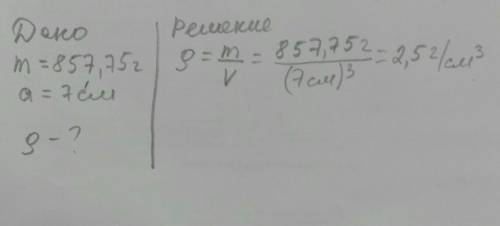 Дано
m = 857,75г
a = 7см
ρ - ?
Решение
ρ = m/V = 857,75г/(7см)³ = 2,5г/см³